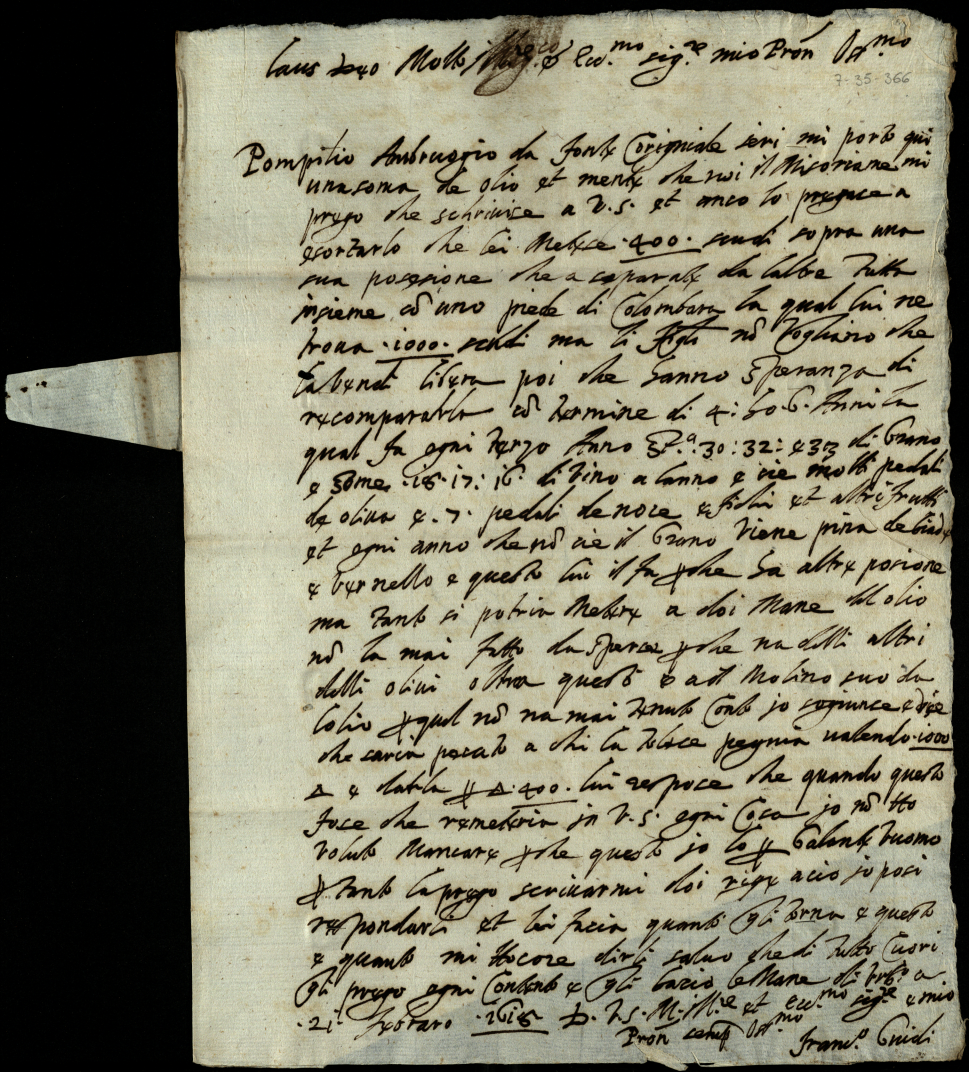 Laus Deo Molto Ill.re et Ecc.mo sig.re mio Pron Oss.mo
7-35-366
Pompilio Ambruogio da fonte Corigniale ieri mi porto qui
una soma de olio et mente che noi il Misoriane mi
prego che schriuise a V.S. et anco lo pregace a
esortarlo che lei Metese .400. scudi sopra una
sua posesione che a separate da laltre Tutta
insieme cō uno piede di Colombara la qual lui ne
troua .1000. scudi ma li figli nō Vogliano che
la vendi libera poi che hanno speranza di
recomparalla cō termine di 4: 5 o 6. Anni la
qual fa ogni terzo Anno St.a 30: 32: e 33 di Grano
e some .18. 17: 16. di Vino a lanno e cie molti pedali
de oliua e .7. pedali de noce e fichi et altri frutti
et ogni anno che nō cie il Grano Viene pina de biade
e vernello e questo lui il fa p che ha altre posione
ma tanto si potria Metere a doi Mane del olio
nō la mai fatto da sparte p che na delli altri
delli oliui oltra questi e a il Molino suo da
lolio p qual nō na mai tenuto Conto jo sogiunce e dice
che saria pecato a chi la tolece pegnia ualendo .1000
Δ e darla p Δ 400. lui respoce che quando questo
foce che remeteria in V.S. ogni Cosa jo nō Ho
Voluto Mancare p che questo jo lo p Galante Vuomo
p tanto la prego scriuarmi doi rige acio jo posi
respondarli et lei facia quanto gli torna e questo
e quanto mi Hocore dirli saluo che di tutto Cuori
gli prego ogni Contento e gli bacio le Mane di
.21. febraro .1618. D. V.S. M. Ill.e et ecc.mo sig.re e mio
Pron semp Oss.mo
Franc.o Guidi